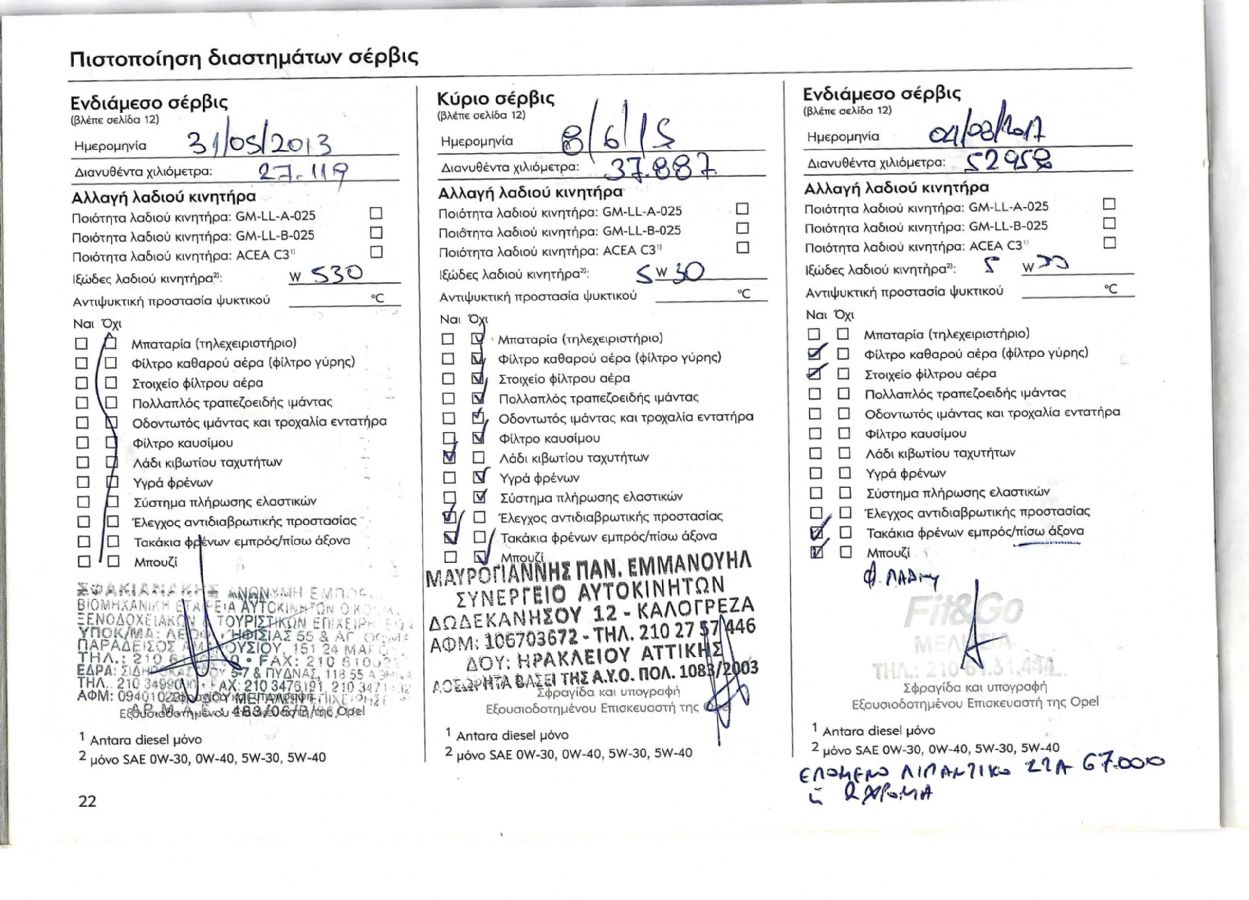 Πιστοποίηση διαστημάτων σέρβις
Ενδιάμεσο σέρβις
(βλέπε σελίδα 12)
Ημερομηνία 31/05/2013
Διανυθέντα χιλιόμετρα: 27.119
Αλλαγή λαδιού κινητήρα
Ποιότητα λαδιού κινητήρα: GM-LL-A-025
Ποιότητα λαδιού κινητήρα: GM-LL-B-025
Ποιότητα λαδιού κινητήρα: ACEA C3¹⁾
Ιξώδες λαδιού κινητήρα²⁾: W 530
Αντιψυκτική προστασία ψυκτικού °C
Ναι Όχι
Μπαταρία (τηλεχειριστήριο)
Φίλτρο καθαρού αέρα (φίλτρο γύρης)
Στοιχείο φίλτρου αέρα
Πολλαπλός τραπεζοειδής ιμάντας
Οδοντωτός ιμάντας και τροχαλία εντατήρα
Φίλτρο καυσίμου
Λάδι κιβωτίου ταχυτήτων
Υγρά φρένων
Σύστημα πλήρωσης ελαστικών
Έλεγχος αντιδιαβρωτικής προστασίας
Τακάκια φρένων εμπρός/πίσω άξονα
Μπουζί
ΣΦΑΚΙΑΝΑΚΗΣ ΑΝΩΝΥΜΗ ΕΜΠΟΡ
ΒΙΟΜΗΧΑΝΙΚΗ ΕΤΑΙΡΕΙΑ ΑΥΤΟΚΙΝΗΤΩΝ
ΞΕΝΟΔΟΧΕΙΑΚΩΝ & ΤΟΥΡΙΣΤΙΚΩΝ ΕΠΙΧΕΙΡΗΣΕΩΝ
ΥΠΟΚ/ΜΑ: ΛΕΩΦ. ΚΗΦΙΣΙΑΣ 55 & ΑΓ.
ΠΑΡΑΔΕΙΣΟΣ ΑΜΑΡΟΥΣΙΟΥ, 151 24 ΜΑΡ
ΤΗΛ.: 210 FAX: 210
ΕΔΡΑ: 5-7 & ΠΥΔΝΑΣ, 118 55
ΤΗΛ. 210 FAX: 210 3476191, 210
ΑΦΜ:
Σφραγίδα και υπογραφή
Εξουσιοδοτημένου Επισκευαστή της Opel
Α.Ρ.Μ.Α.Ε. 483/06/Β/
¹ Antara diesel μόνο
² μόνο SAE 0W-30, 0W-40, 5W-30, 5W-40
22
Κύριο σέρβις
(βλέπε σελίδα 12)
Ημερομηνία 8/6/15
Διανυθέντα χιλιόμετρα: 37.887
Αλλαγή λαδιού κινητήρα
Ποιότητα λαδιού κινητήρα: GM-LL-A-025
Ποιότητα λαδιού κινητήρα: GM-LL-B-025
Ποιότητα λαδιού κινητήρα: ACEA C3¹⁾
Ιξώδες λαδιού κινητήρα²⁾: 5 W 30
Αντιψυκτική προστασία ψυκτικού °C
Ναι Όχι
Μπαταρία (τηλεχειριστήριο)
Φίλτρο καθαρού αέρα (φίλτρο γύρης)
Στοιχείο φίλτρου αέρα
Πολλαπλός τραπεζοειδής ιμάντας
Οδοντωτός ιμάντας και τροχαλία εντατήρα
Φίλτρο καυσίμου
Λάδι κιβωτίου ταχυτήτων
Υγρά φρένων
Σύστημα πλήρωσης ελαστικών
Έλεγχος αντιδιαβρωτικής προστασίας
Τακάκια φρένων εμπρός/πίσω άξονα
Μπουζί
ΜΑΥΡΟΓΙΑΝΝΗΣ ΠΑΝ. ΕΜΜΑΝΟΥΗΛ
ΣΥΝΕΡΓΕΙΟ ΑΥΤΟΚΙΝΗΤΩΝ
ΔΩΔΕΚΑΝΗΣΟΥ 12 - ΚΑΛΟΓΡΕΖΑ
ΑΦΜ: 106703672 - ΤΗΛ. 210 27 57 446
ΔΟΥ: ΗΡΑΚΛΕΙΟΥ ΑΤΤΙΚΗΣ
ΑΘΕΩΡΗΤΑ ΒΑΣΕΙ ΤΗΣ Α.Υ.Ο. ΠΟΛ. 1083/2003
Σφραγίδα και υπογραφή
Εξουσιοδοτημένου Επισκευαστή της Opel
¹ Antara diesel μόνο
² μόνο SAE 0W-30, 0W-40, 5W-30, 5W-40
Ενδιάμεσο σέρβις
(βλέπε σελίδα 12)
Ημερομηνία 04/03/2017
Διανυθέντα χιλιόμετρα: 52958
Αλλαγή λαδιού κινητήρα
Ποιότητα λαδιού κινητήρα: GM-LL-A-025
Ποιότητα λαδιού κινητήρα: GM-LL-B-025
Ποιότητα λαδιού κινητήρα: ACEA C3¹⁾
Ιξώδες λαδιού κινητήρα²⁾: 5 W 30
Αντιψυκτική προστασία ψυκτικού °C
Ναι Όχι
Μπαταρία (τηλεχειριστήριο)
Φίλτρο καθαρού αέρα (φίλτρο γύρης)
Στοιχείο φίλτρου αέρα
Πολλαπλός τραπεζοειδής ιμάντας
Οδοντωτός ιμάντας και τροχαλία εντατήρα
Φίλτρο καυσίμου
Λάδι κιβωτίου ταχυτήτων
Υγρά φρένων
Σύστημα πλήρωσης ελαστικών
Έλεγχος αντιδιαβρωτικής προστασίας
Τακάκια φρένων εμπρός/πίσω άξονα
Μπουζί
Φ. ΛΑΔΙΟΥ
Fit&Go
ΜΕΛΙΣΣΙΑ
ΤΗΛ.: 210 61.31.444
Σφραγίδα και υπογραφή
Εξουσιοδοτημένου Επισκευαστή της Opel
¹ Antara diesel μόνο
² μόνο SAE 0W-30, 0W-40, 5W-30, 5W-40
ΕΠΟΜΕΝΟ ΛΙΠΑΝΤΙΚΟ ΣΤΑ 67.000
ή 2 ΧΡΟΝΙΑ